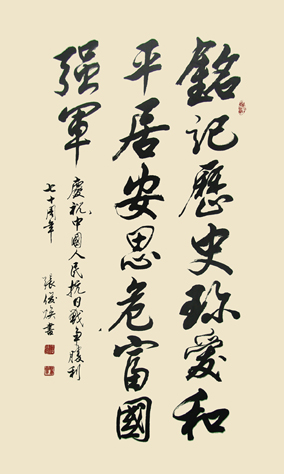 銘记歷史珍愛和
平居安思危富國
强軍
慶祝中國人民抗日戰争勝利
七十周年
張俊
書